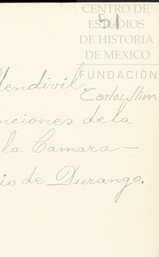 CENTRO DE
ESTUDIOS
DE HISTORIA
DE MEXICO
FUNDACIÓN
Carlos Slim
endivil,
nciones de la
la Camara —
io de Durango.